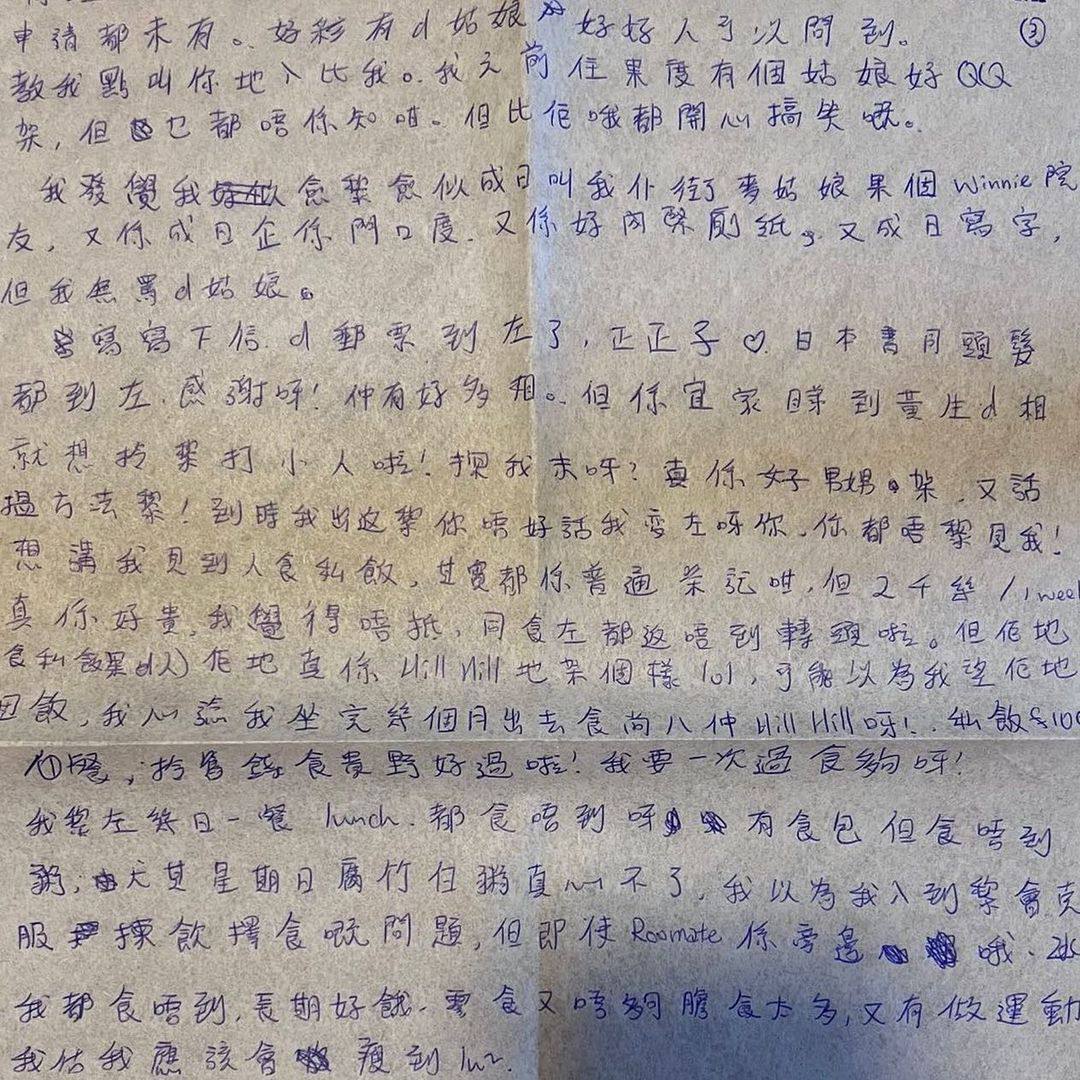 申請都未有。好彩有d姑娘好好人可以問到。 ③
教我點叫你地入比我。我之前住果度有個姑娘好QQ
架,但也都唔係知咁。但比佢哦都開心搞笑嘅。
我發覺我愈黎愈似成日叫我仆街麥姑娘果個Winnie院
友,又係成日企係門口度.又係好肉緊廁紙,又成日寫字,
但我無罵d姑娘。
寫寫下信.d郵票到左了,正正子♡.日本書同頭髮
都到左.感謝呀!仲有好多相。但係宜家睇到黃生d相
就想拎黎打小人啦!探我未呀?真係好男朋架.又話
搵方法黎!到時我出返黎你唔好話我變左呀你,你都唔黎見我!
想講我見到人食私飯,其實都係普通茶記咁,但2千幾/1week
真係好貴,我覺得唔抵,同食左都返唔到轉頭啦。但佢地
食私飯果d人)佢地真係Hill Hill地架個樣lol,可能以為我望佢地
飯,我心諗我坐完幾個月出去食尚八仲Hill Hill呀!私飯$100
1餐,拎舊錢食貴野好過啦!我要一次過食夠呀!
我黎左幾日一餐lunch.都食唔到呀 有食包但食唔到
粥,尤其星期日腐竹白粥真心不了,我以為我入到黎會克
服揀飲擇食嘅問題,但即使Roomate係旁邊哦.
我都食唔到,長期好餓.零食又唔夠膽食太多,又有做運動
我估我應該會瘦到